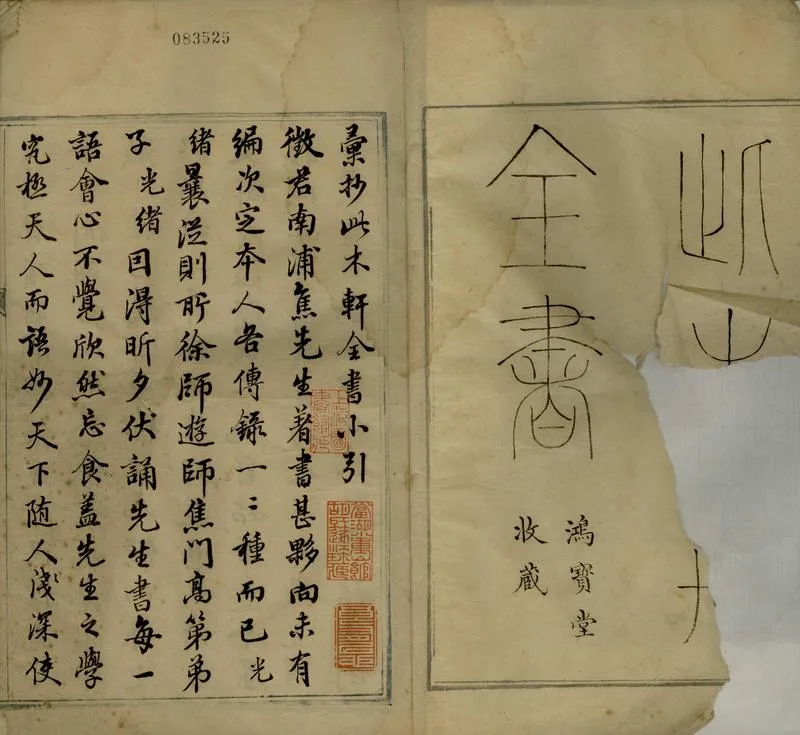 083525
此
全書
鴻寶堂
收藏
彙抄此木軒全書小引
徵君南浦焦先生著書甚夥向未有
編次定夲人各傳錄一二種而已光
緒曩從則所徐師遊師焦門高第弟
子光緒因得昕夕伏誦先生書每一
語會心不覺欣然忘食蓋先生之學
究極天人而語妙天下随人淺深使
上海圖書館藏